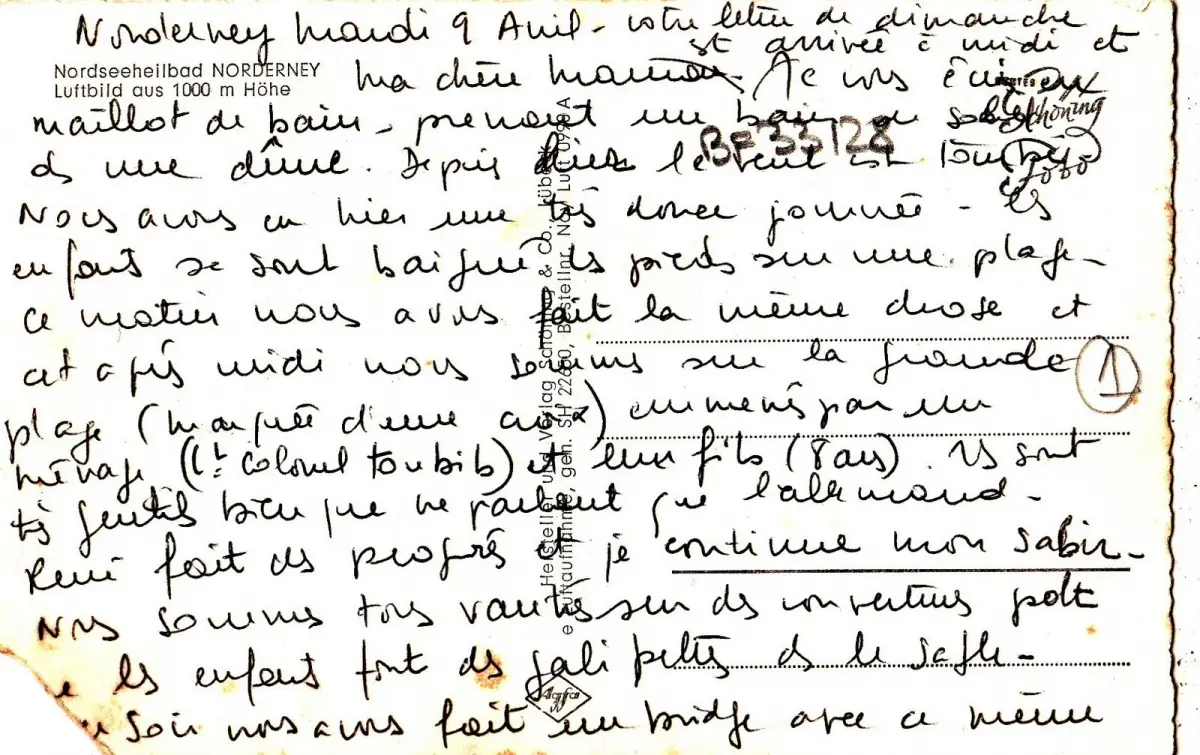 Norderney Mardi 9 Avril - votre lettre de dimanche
est arrivée à midi et
Nordseeheilbad NORDERNEY
Luftbild aus 1000 m Höhe
Ma chère Maman. Je vous écris en
maillot de bain, prenant un bain de soleil
ds une dûne. Depuis hier le vent est tombé
BF 33128
Schöning
Foto
Nous avons eu hier une très douce journée - les
enfants se sont baigné les pieds sur une plage -
ce matin nous avons fait la même chose et
cet après midi nous sommes sur la grande
1
plage (marquée d'une croix) emmenés par un
ménage (Lt colonel toubib) et leur fils (8 ans). Ils sont
très gentils bien que ne parlent que l'allemand -
René fait des progrès et je continue mon sabir -
Nous sommes tous vautrés sur des couvertures
les enfants font des galipettes ds le sable -
soir nous avons fait un bridge avec ce même
Hersteller und Verlag Schöning & Co., Lübeck
Luftaufnahme, gen. SH 22
Agfa